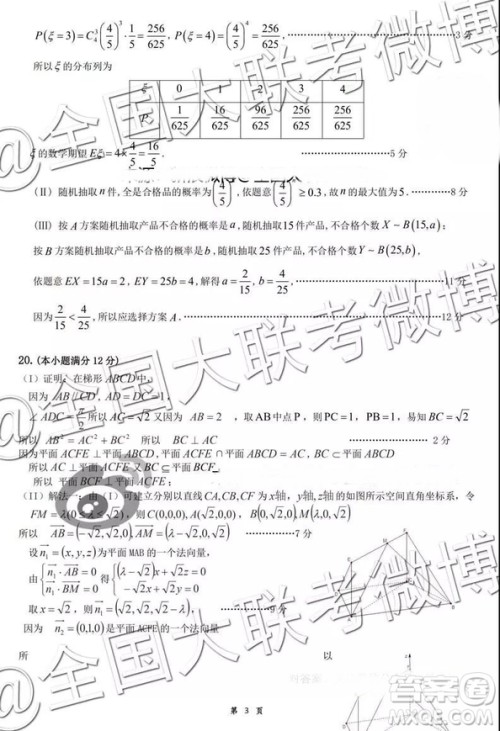 P(ξ=3)=C₄³(4/5)³·1/5=256/625, P(ξ=4)=(4/5)⁴=256/625 ························3分
所以ξ的分布列为
ξ 0 1 2 3 4
P 1/625 16/625 96/625 256/625 256/625
ξ的数学期望Eξ=4×4/5=16/5 ························5分
(II) 随机抽取n件,全是合格品的概率为(4/5)ⁿ,依题意(4/5)ⁿ≥0.3,故n的最大值为5.············8分
(III) 按A方案随机抽取产品不合格的概率是a,随机抽取15件产品,不合格个数X~B(15,a);
按B方案随机抽取产品不合格的概率是b,随机抽取25件产品,不合格个数Y~B(25,b),
依题意EX=15a=2,EY=25b=4,解得a=2/15,b=4/25, ············11分
因为2/15<4/25,所以应选择方案A.························12分
20.(本小题满分12分)
(I)证明:在梯形ABCD中,
因为AB//CD,
∠ADC= 所以AC=√2 又因为 AB=2 ,取AB中点P,则PC=1,PB=1,易知BC=√2
所以 AB²=AC²+BC² 所以 BC⊥AC ························2分
因为平面ACFE⊥平面ABCD,平面ACFE∩平面ABCD=AC,BC⊂平面ABCD
所以BC⊥平面ACFE又BC⊆平面BCF
所以 平面ACFE⊥平面BCF
(11)解法一:由(1)可建立分别以直线CA,CB,CF为x轴,y轴,z轴的如图所示空间直角坐标系,令
FM=λ(0≤λ≤√2),则C(0,0,0),A(√2,0,0),B(0,√2,0),M(λ,0,√2)
所以 AB=(-√2,√2,0),AM=(λ-√2,0,√2) ············7分
设n₁=(x,y,z)为平面MAB的一个法向量,
由{n₁·AB=0 n₁·BM=0 得{(λ-√2)x+√2z=0 -√2x+√2y=0
取x=√2,则n₁=(√2,√2,√2-λ), ············9分
因为 n₂=(0,1,0)是平面ACFE的一个法向量
所 以
第 3 页
@全国大联考微博
@全国大联考微博
@全国大联考微博
答案圈
MXQE.COM